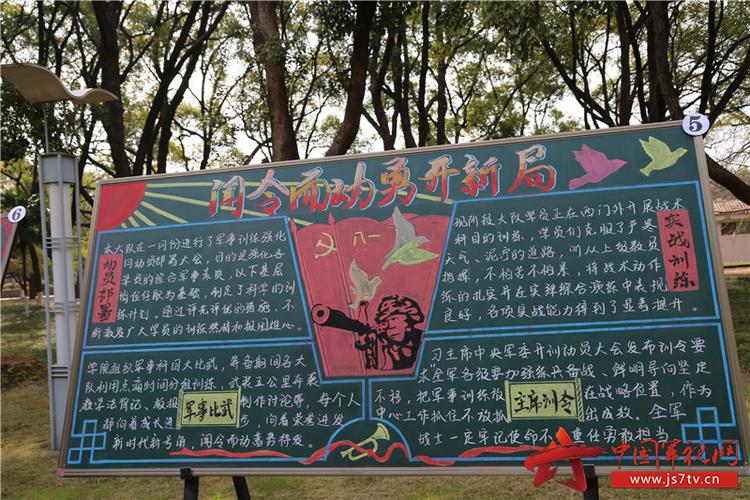 闻令而动勇开新局
5
6
本大队在一月份进行了军事训练强化
月动员部署大会，目的是强化各
学员的综合军事素质，以下基层
岗位任职为基础，制定了科学的训
练计划，通过评先评优的措施，不
断激发广大学员的训练热情和报国雄心。
动员部署
八一
现阶段大队学员正在西门外开展战术
科目的训练，学员们克服了严寒
天气、泥泞的道路，听从上级教员
指挥，不怕苦不怕累，将战术动作
练的扎实并在实弹综合演练中表现
良好，各项具战能力得到了显著提升。
实战训练
学院组织军事科目大比武，筹备期间各大
队利用点滴时间分组训练，武装五公里奔袭
教学法背记、板报
制作讨论等，每个人
都向着成长进步
向着荣誉进发
新时代新号角，闻令而动勇毅待发。
军事比武
习主席中央军委开训动员大会发布训令要
求全军各级要加强练兵备战、鲜明导向坚定
不移，把军事训练放在战略位置，作为
中心工作抓住不放抓出成效。全军
战士一定牢记使命不
重任勇敢担当。
主席训令
中国军视网
www.js7tv.cn